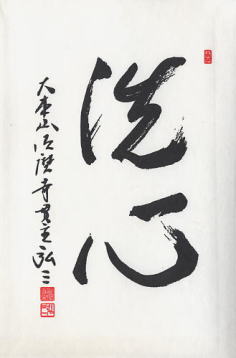 洗心
大本山須磨寺貫主弘三